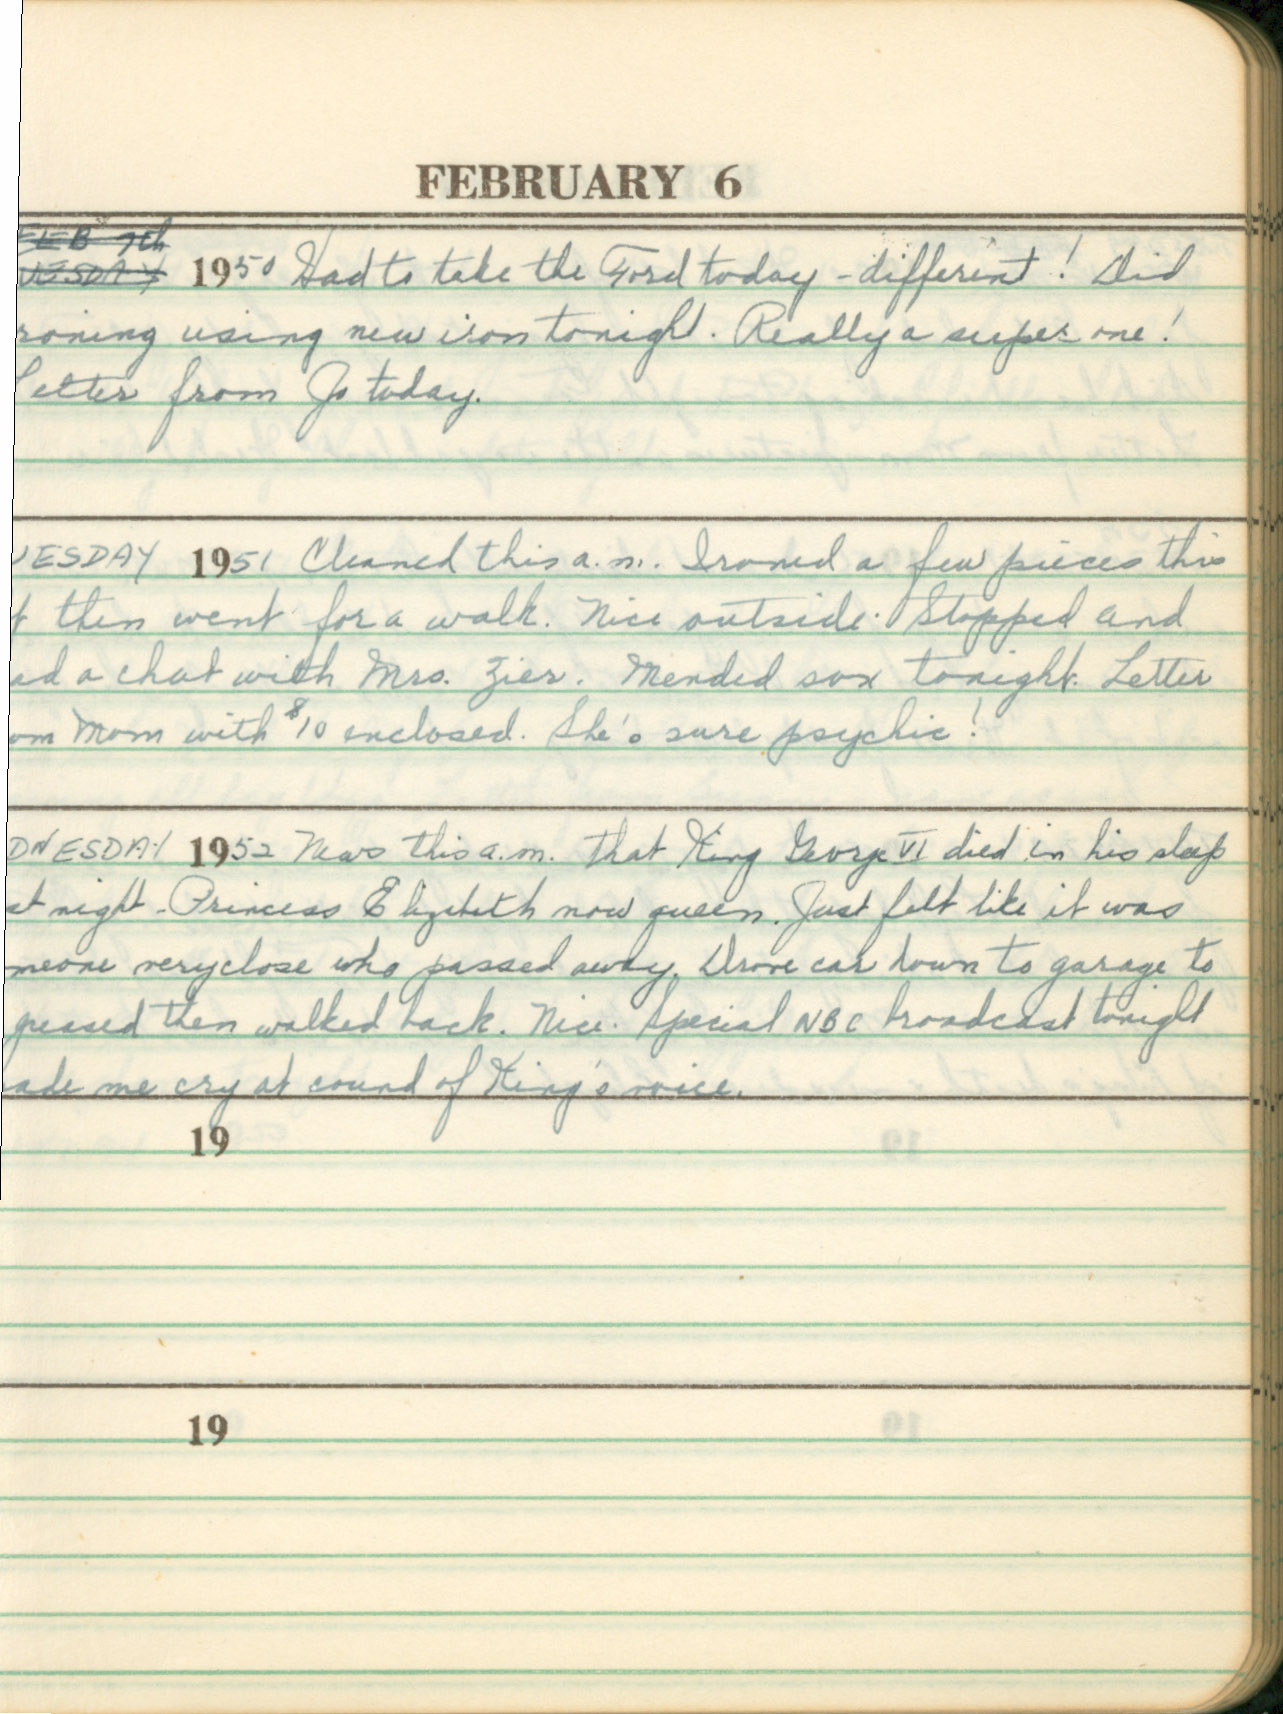 FEBRUARY 6
FEB 7th
UESDAY 1950 Had to take the Ford today - different! Did
roning using new iron tonight. Really a super one!
Letter from Jo today.
UESDAY 1951 Cleaned this a.m. Ironed a few pieces this
then went for a walk. Nice outside. Stopped and
ad a chat with Mrs. Zier. Mended sox tonight. Letter
om Mom with $10 enclosed. She's sure psychic!
DNESDAY 1952 News this a.m. that King George VI died in his sleep
st night. Princess Elizabeth now queen. Just felt like it was
meone very close who passed away. Drove car down to garage to
greased then walked back. Nice. Special NBC broadcast tonight
ade me cry at sound of King's voice.
19
19